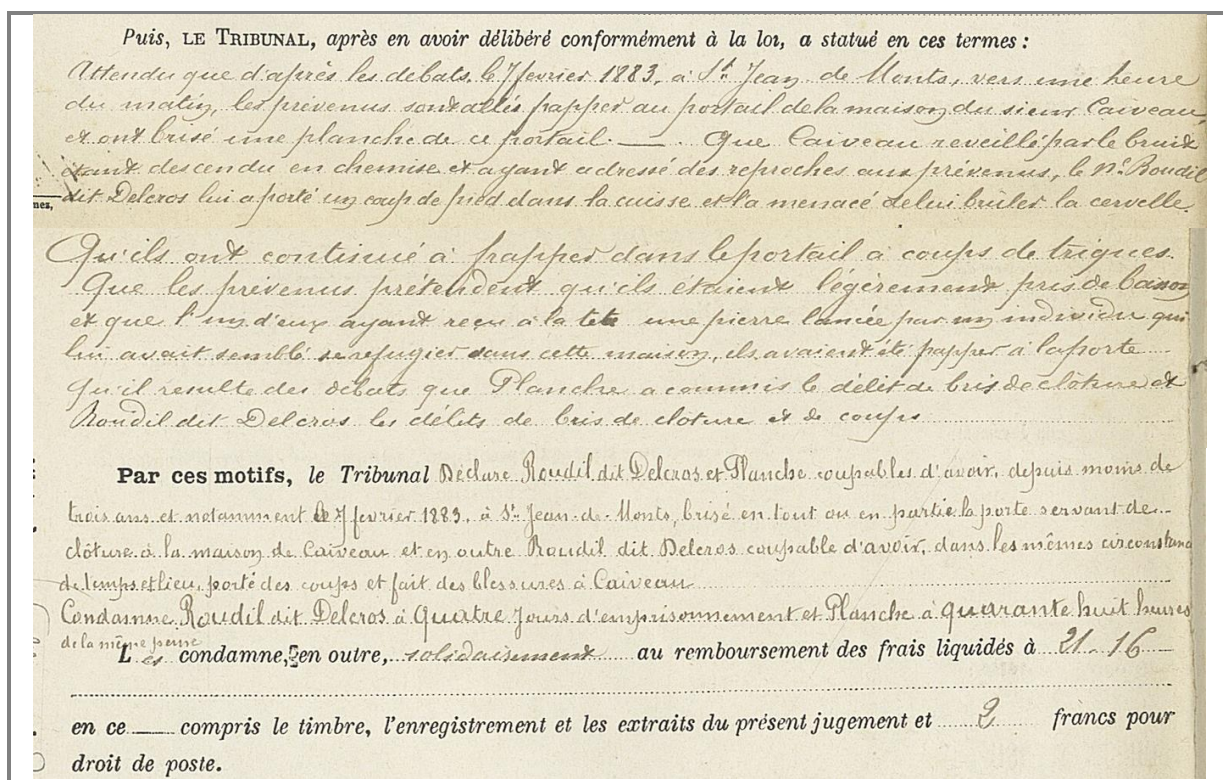 Puis, LE TRIBUNAL, après en avoir délibéré conformément à la loi, a statué en ces termes :
Attendu que d'après les débats, le 7 fevrier 1883, à St Jean de Monts, vers une heure
du matin, les prévenus sont allés frapper au portail de la maison du sieur Caiveau
et ont brisé une planche de ce portail. — . Que Caiveau reveillé par le bruit
étant descendu en chemise et ayant adressé des reproches aux prévenus, le né Roudil
nes, dit Delcros lui a porté un coup de pied dans la cuisse et l'a menacé de lui brûler la cervelle.
Qu'ils ont continué à frapper dans le portail à coups de triques.
Que les prévenus prétendent qu'ils étaient légèrement pris de boisson
et que l'un d'eux ayant reçu à la tete une pierre lancée par un individu qui
lui avait semblé se refugier dans cette maison, ils avaient été frapper à la porte
qu'il resulte des débats que Planche a commis le délit de bris de clôture et
Roudil dit Delcros les délits de bris de cloture et de coups
Par ces motifs, le Tribunal Déclare Roudil dit Delcros et Planche coupables d'avoir, depuis moins de
trois ans et notamment le 7 fevrier 1883, à St Jean-de-Monts, brisé en tout ou en partie la porte servant de
clôture à la maison de Caiveau et en outre Roudil dit Delcros coupable d'avoir, dans les mêmes circonstances
de temps et lieu, porté des coups et fait des blessures à Caiveau
Condamne Roudil dit Delcros à Quatre Jours d'emprisonnement et Planche à quarante huit heures
de la même peine
Les condamne, en outre, solidairement au remboursement des frais liquidés à 21-16
en ce — compris le timbre, l'enregistrement et les extraits du présent jugement et 2 francs pour
droit de poste.